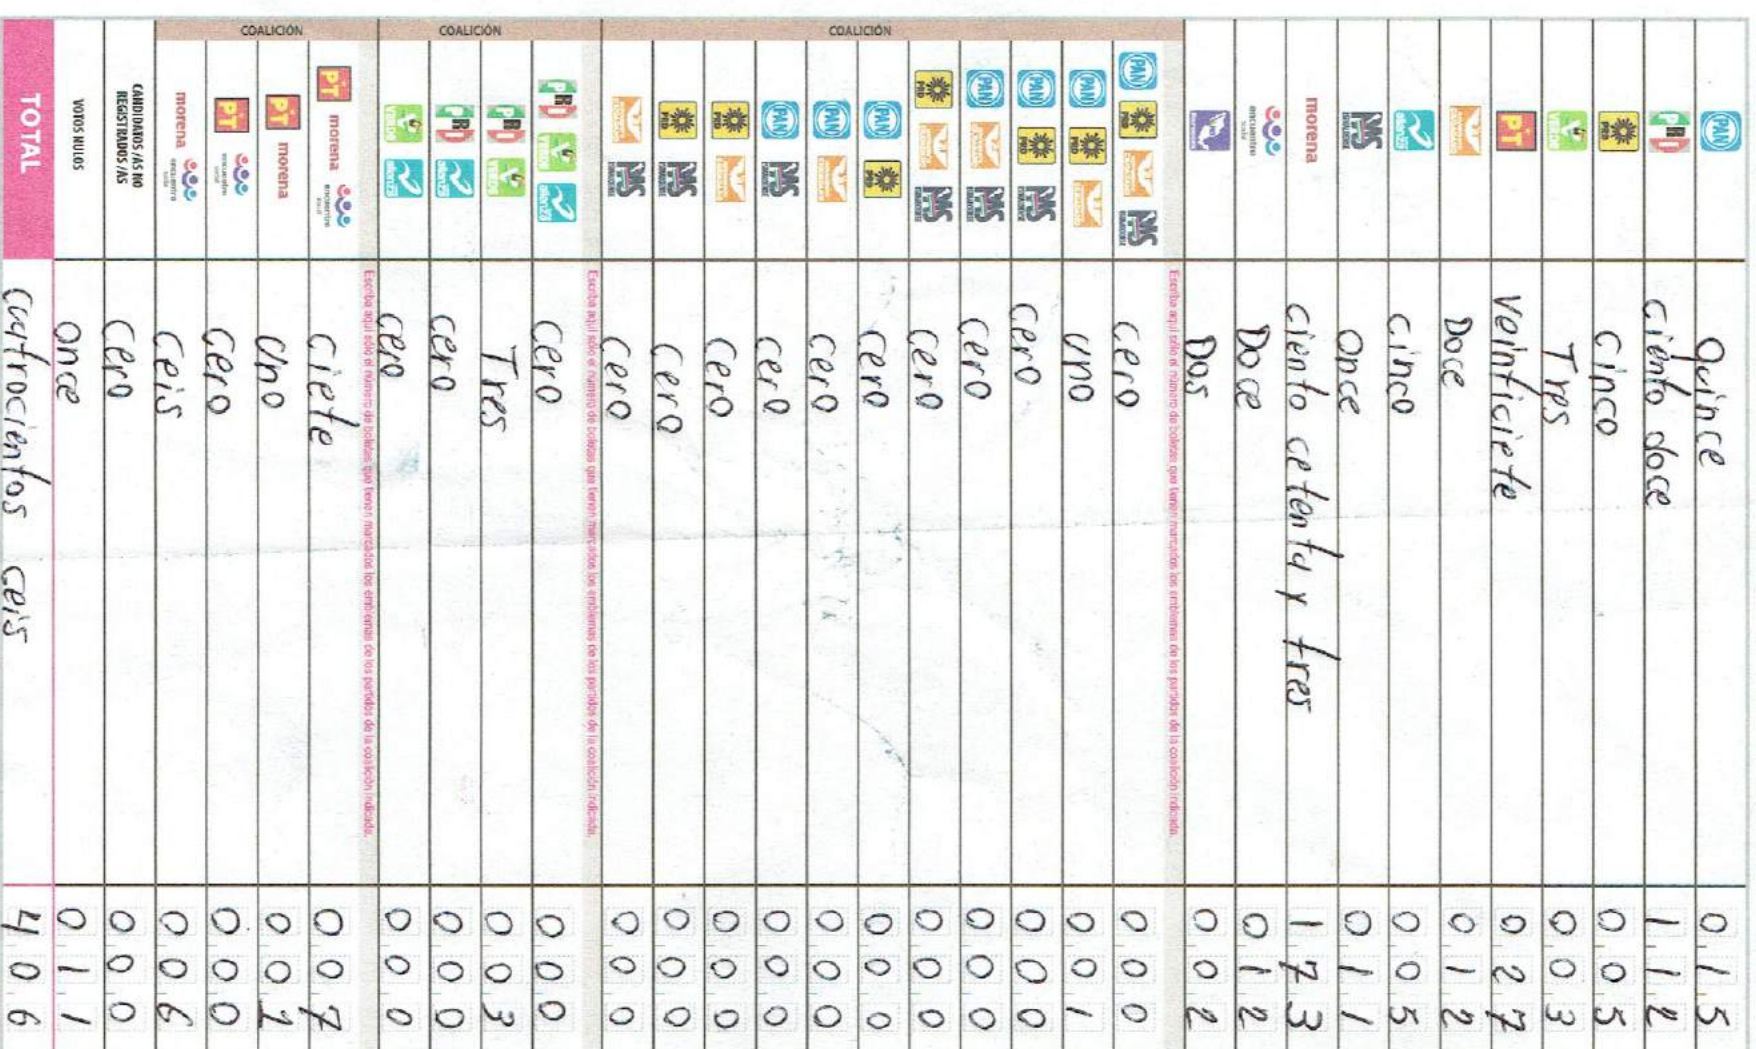 PAN Quince 015
PRI Ciento doce 112
PRD Cinco 005
VERDE Tres 003
PT Veinticiete 027
Doce 012
alianza Cinco 005
Once 011
morena Ciento cetenta y tres 173
encuentro social Doce 012
Dos 002
COALICIÓN
Escriba aquí sólo el número de boletas que tienen marcados los emblemas de los partidos de la coalición indicada.
PAN PRD Cero 000
PAN PRD Uno 001
PAN PRD Cero 000
PAN Cero 000
PRD Cero 000
PAN PRD Cero 000
PAN Cero 000
PAN Cero 000
PRD Cero 000
PRD Cero 000
Cero 000
COALICIÓN
Escriba aquí sólo el número de boletas que tienen marcados los emblemas de los partidos de la coalición indicada.
PRI VERDE alianza Cero 000
PRI VERDE Tres 003
PRI alianza Cero 000
VERDE alianza Cero 000
COALICIÓN
Escriba aquí sólo el número de boletas que tienen marcados los emblemas de los partidos de la coalición indicada.
PT morena encuentro social Ciete 007
PT morena Uno 001
PT encuentro social Cero 000
morena encuentro social Ceis 006
CANDIDATOS/AS NO
REGISTRADOS/AS Cero 000
VOTOS NULOS Once 011
TOTAL Cuatrocientos ceis 406